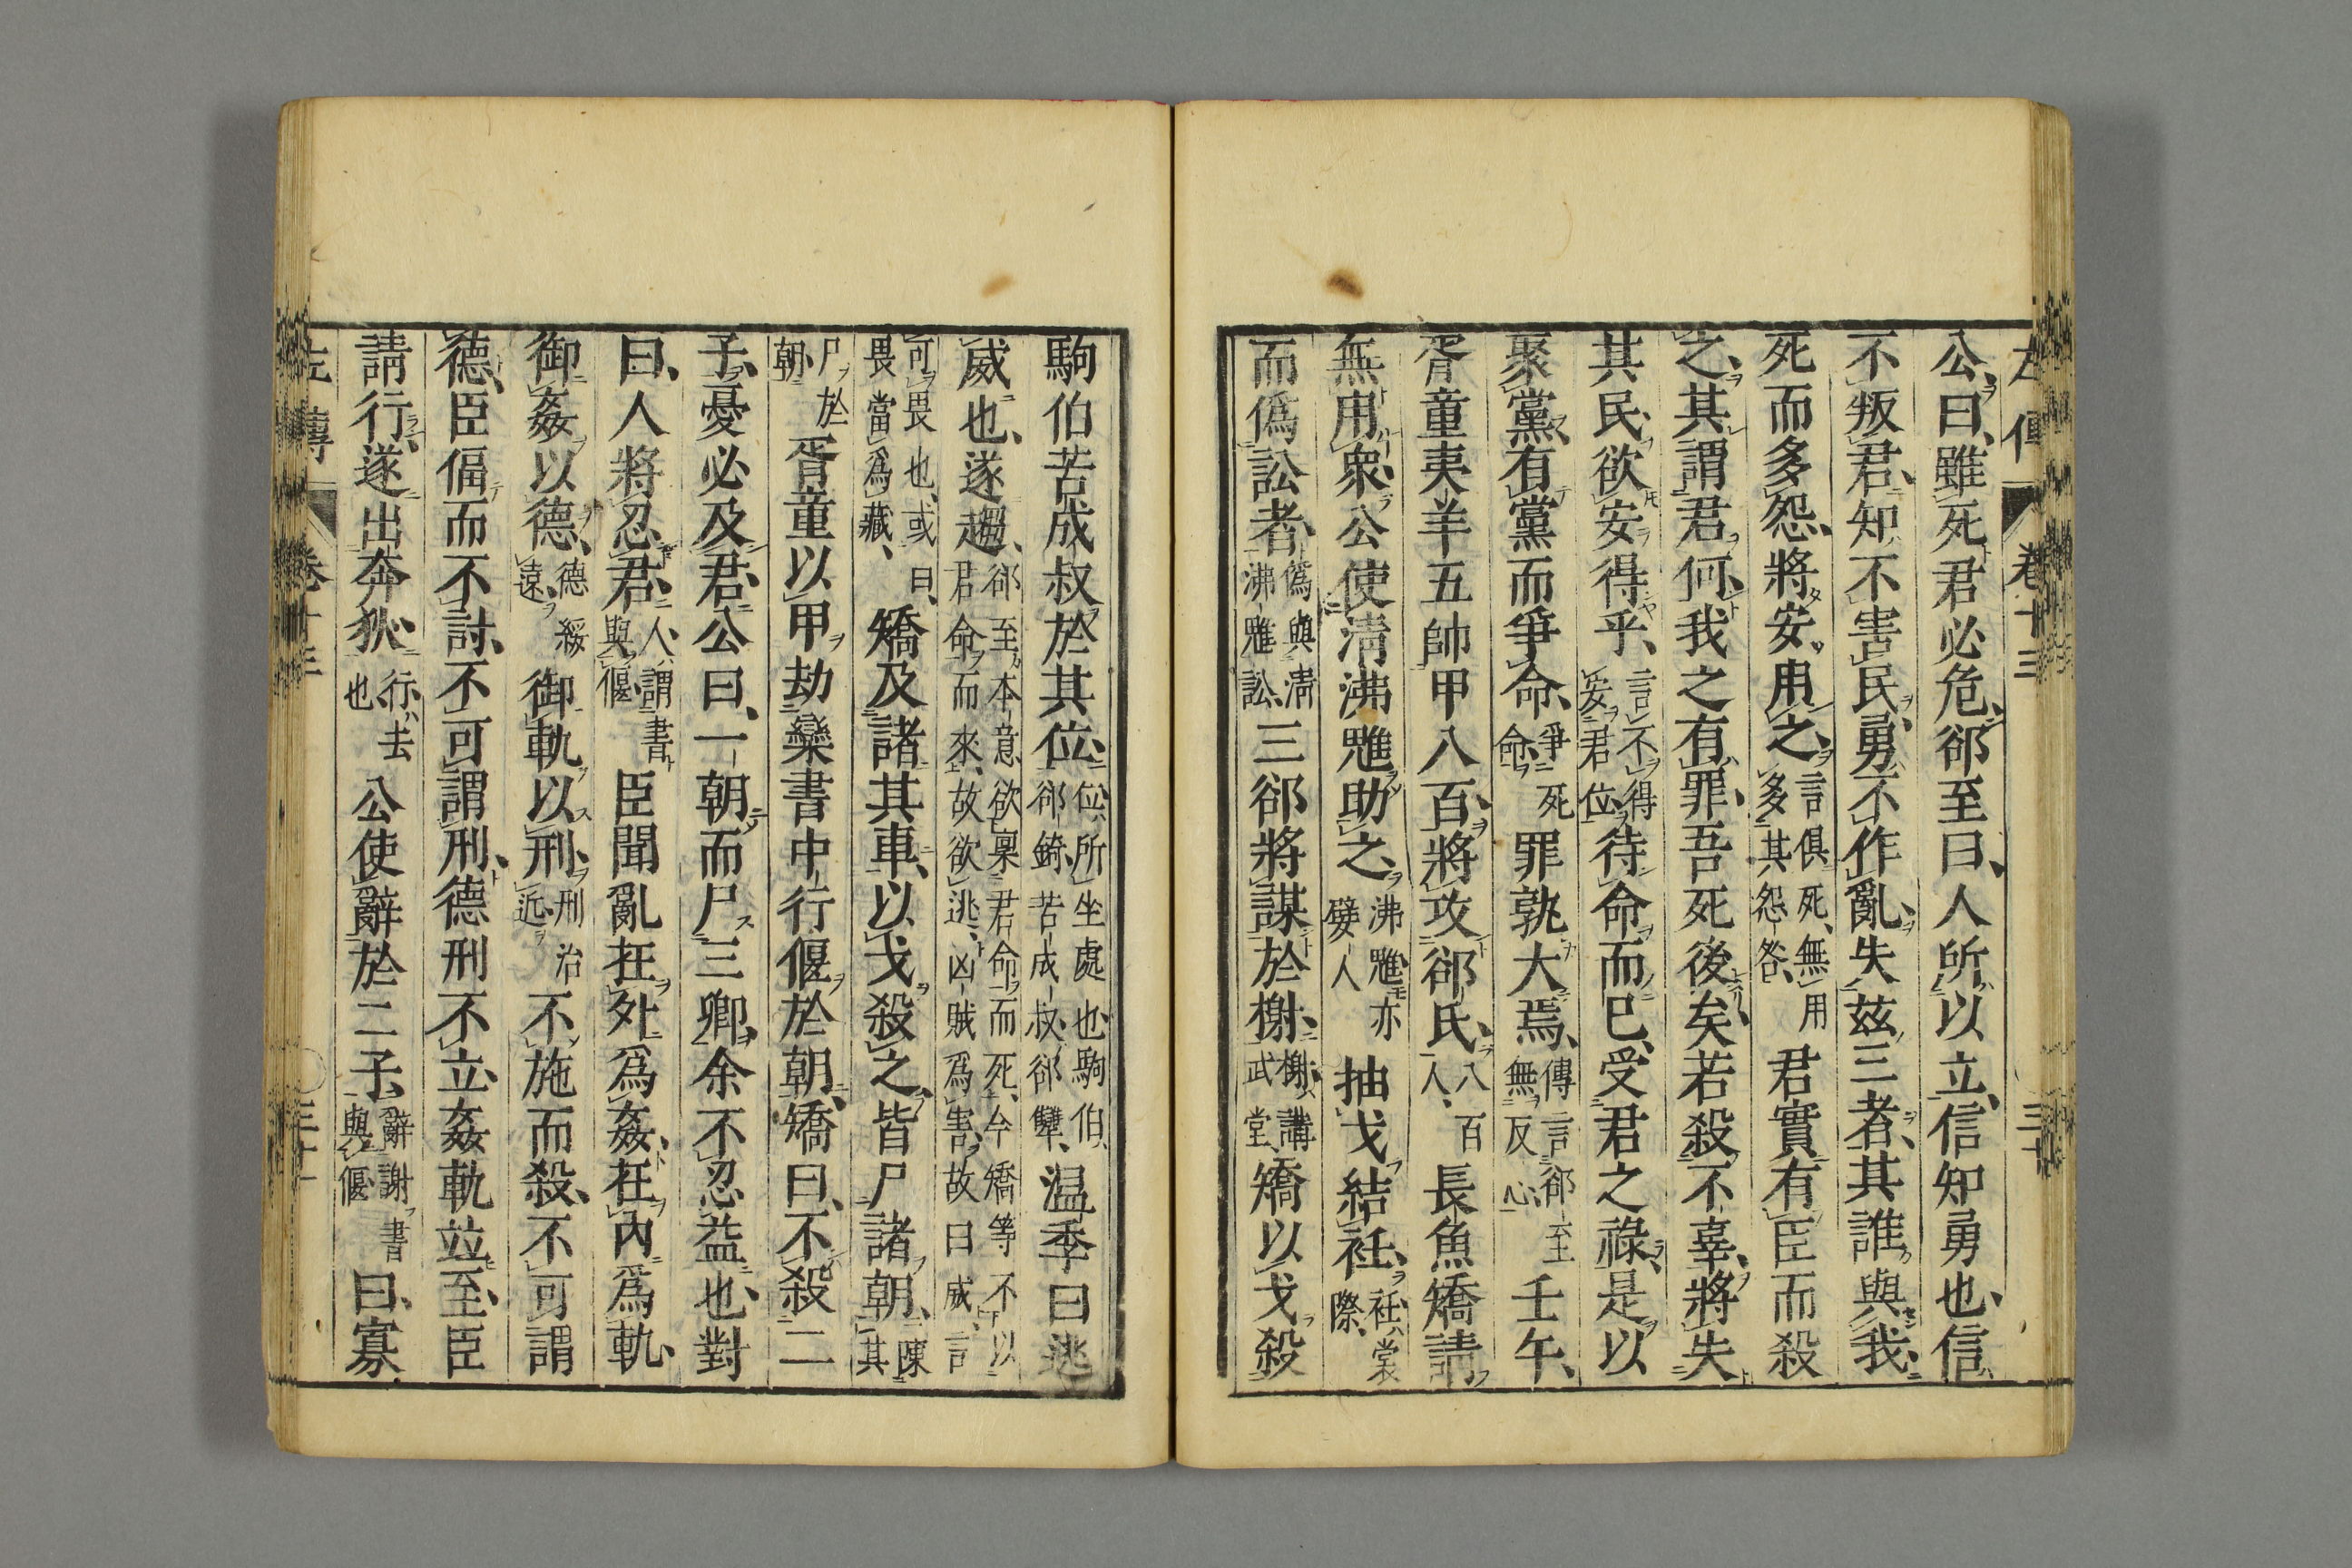 左傳 卷十三 三十
公曰雖死君必危郤至曰人所以立信知勇也信
不叛君知不害民勇不作亂失茲三者其誰與我
死而多怨將安用之言俱死無用多其怨咎君實有臣而殺
之其謂君何我之有罪吾死後矣若殺不辜將失
其民欲安得乎言不得安君位待命而已受君之祿是以
聚黨有黨而爭命爭死命罪孰大焉傳言郤至無反心壬午
胥童夷羊五帥甲八百將攻郤氏八百人長魚矯請
無用衆公使淸沸魋助之沸魋亦嬖人抽戈結衽衽裳際
而僞訟者僞與淸沸魋訟三郤將謀於榭榭講武堂矯以戈殺
駒伯苦成叔於其位位所坐處也駒伯郤錡苦成叔郤犨溫季曰逃
威也遂趨郤至本意欲稟君命而死今矯等不以君命而來故欲逃凶賊爲害故曰威言
可畏也或曰畏當爲藏矯及諸其車以戈殺之皆尸諸朝陳其
尸於朝胥童以甲劫欒書中行偃於朝矯曰不殺二
子憂必及君公曰一朝而尸三卿余不忍益也對
曰人將忍君人謂書與偃臣聞亂在外爲姦在內爲軌
御姦以德德綏遠御軌以刑刑治近不施而殺不可謂
德臣偪而不討不可謂刑德刑不立姦軌竝至臣
請行遂出奔狄行去也公使辭於二子辭謝書與偃曰寡
左傳 卷十三